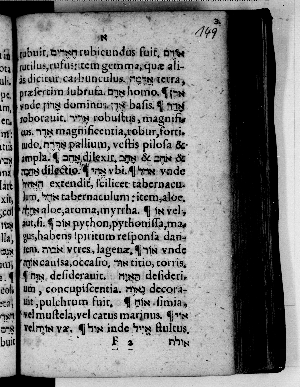 149
א
rubuit. האדים rubicundus fuit. אדום
rutilus, rufus; item gemma, quæ ali-
às dicitur carbunculus. אדמה terra,
præsertim subrufa. אדם homo. ¶ אדן
vnde אדון dominus. אדן basis. ¶
roborauit. אדיר robustus, magnifi-
cus. אדר magnificentia, robur, forti-
tudo. אדרת pallium, vestis pilosa &
ampla. ¶ אהב dilexit. אהב & אהב &
אהבה dilectio. ¶ אהי vbi. ¶ אהל vnde
האהיל extendit, scilicet tabernacu-
lum. אהל tabernaculum; item, aloe.
אהלה aloe, aroma, myrrha. ¶ או vel,
aut, si. ¶ אוב python, pythonissa, ma-
gus, habens spiritum responsa dan-
tem. אבות vtres, lagenæ. ¶ אוד vnde
אודה causa, occasio, אוד titio, torris.
¶ אוה desiderauit. תאוה desideri-
um, concupiscentia. נאוה decora-
uit, pulchrum fuit. ¶ אוח simia,
vel mustela, vel catus marinus. ¶ אוי
vel אויה væ. ¶ אול inde אויל stultus.
F 2
אולת